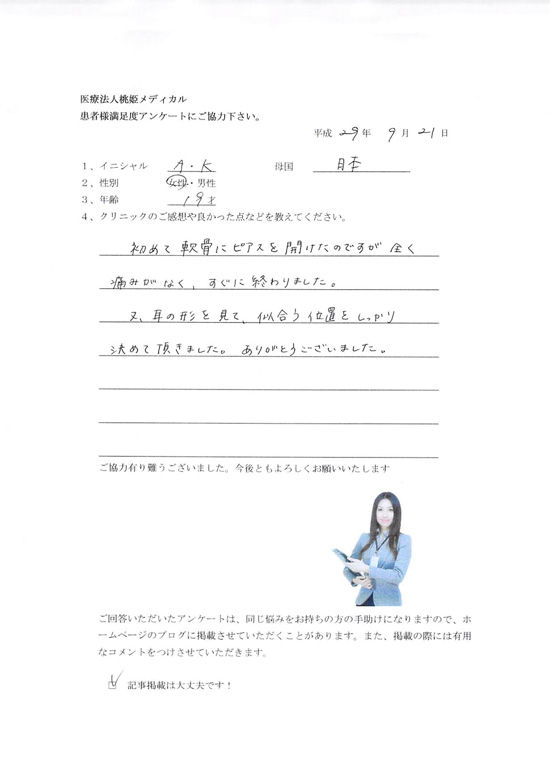 医療法人桃姫メディカル
患者様満足度アンケートにご協力下さい。
平成 29 年 9 月 21 日
1、イニシャル A・K 母国 日本
2、性別 女性・男性
3、年齢 19才
4、クリニックのご感想や良かった点などを教えてください。
初めて軟骨にピアスを開けたのですが全く
痛みがなく、すぐに終わりました。
又、耳の形を見て、似合う位置をしっかり
決めて頂きました。ありがとうございました。
ご協力有り難うございました。今後ともよろしくお願いいたします
ご回答いただいたアンケートは、同じ悩みをお持ちの方の手助けになりますので、ホ
ームページのブログに掲載させていただくことがあります。また、掲載の際には有用
なコメントをつけさせていただきます。
☑ 記事掲載は大丈夫です！